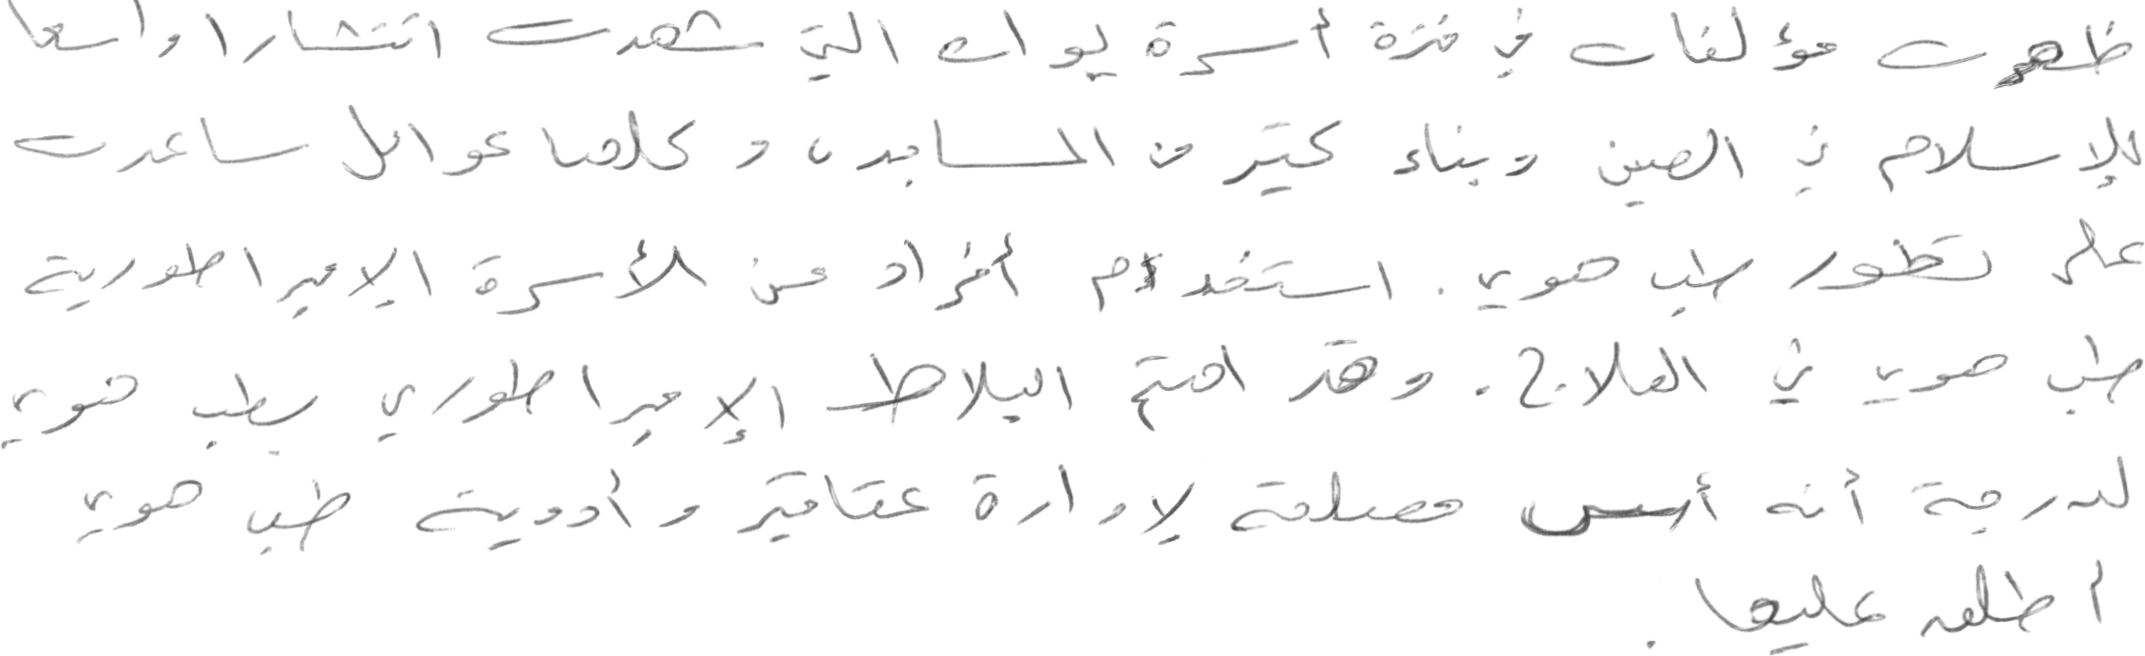 ظهرت مؤلفات في فترة أسرة يوان التي شهدت انتشارا واسعا
للإسلام في الصين وبناء كثير من المساجد، وكلها عوامل ساعدت
على تطور طب هوي. استخدام أفراد من الأسرة الإمبراطورية
طب هوي في العلاج. وقد اهتم البلاط الإمبراطوري بطب هوي
لدرجة أنه أسس مصلحة لإدارة عقاقير وأدوية طب هوي
أطلق عليها.